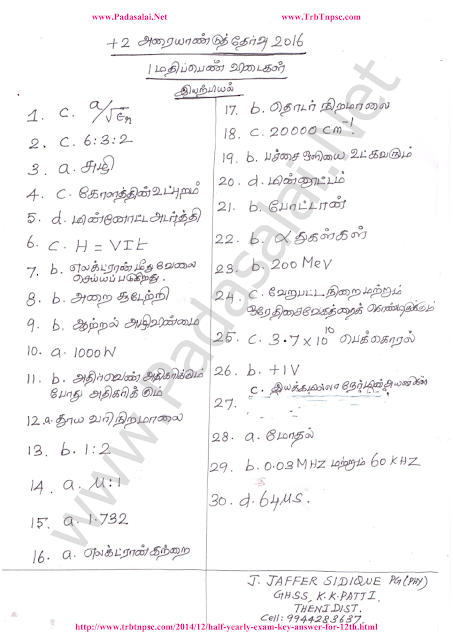 www.Padasalai.Net
www.TrbTnpsc.com
+2 அரையாண்டுத்தேர்வு 2016
1 மதிப்பெண் விடைகள்
இயற்பியல்
1. c. a/√εn
2. c. 6:3:2
3. a. சுழி
4. c. கோளத்தின் உட்புறம்
5. d. மின்னோட்ட அடர்த்தி
6. c. H = VIt
7. b. எலக்ட்ரான் மீது வேலை
செய்யப்படுகிறது.
8. b. அறை சுடேற்றி
9. b. ஆற்றல் அழிவின்மை
10. a. 1000W
11. b. அதிர்வெண் அதிகரிக்கும்
போது அதிகரிக்கும்
12. a. தூய வரிநிறமாலை
13. b. 1:2
14. a. μ:1
15. a. 1.732
16. a. எலக்ட்ரான் கற்றை
17. b. தொடர் நிறமாலை
18. c. 20000 cm⁻¹
19. b. பச்சை ஒளியை உட்கவரும்
20. d. மின்னூட்டம்
21. b. போட்டான்
22. b. α துகள்கள்
23. b. 200 MeV
24. c. வேறுபட்ட நிறை மற்றும்
ஒரே திசைவேகத்தைக் கொண்டிருக்கும்
25. c. 3.7 x 10¹⁰ பெக்கொரல்
26. b. +1V
27. c. இயக்கமில்லா நேர்மின் அயனிகள்
28. a. மோதல்
29. b. 0.03 MHZ மற்றும் 60 KHZ
30. d. 64 μs.
J. JAFFER SIDIQUE PG (PHY)
GHSS, K.K.PATTI.
THENI DIST.
Cell: 9944283637
http://www.trbtnpsc.com/2014/12/half-yearly-exam-key-answer-for-12th.html
www.Padasalai.Net